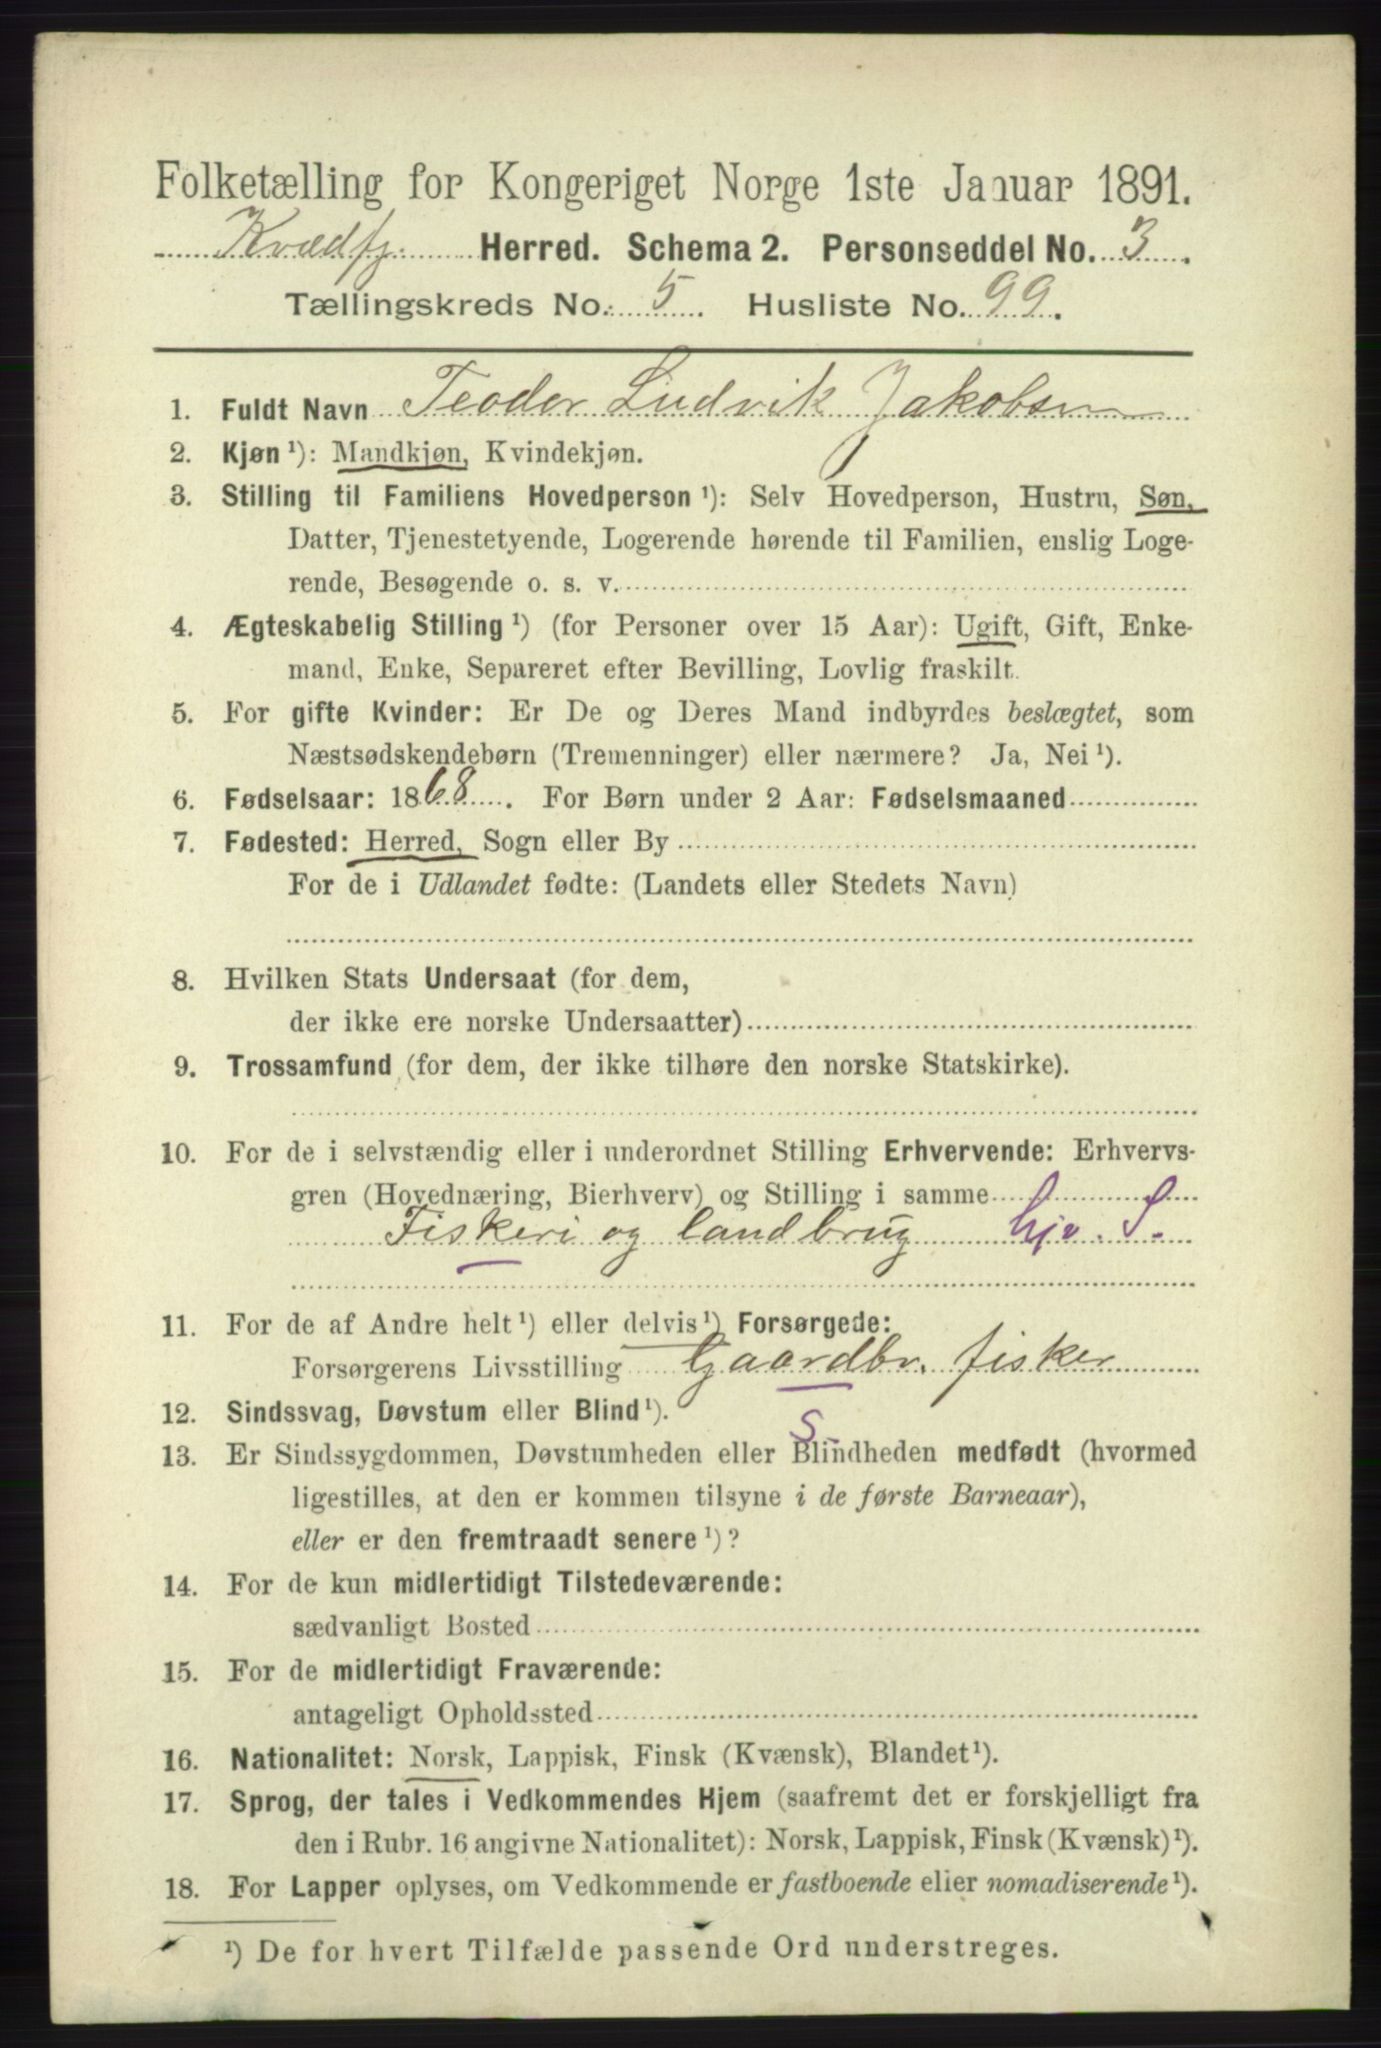 Folketælling for Kongeriget Norge 1ste Januar 1891.
Kvædfj. Herred. Schema 2. Personseddel No. 3.
Tællingskreds No. 5. Husliste No. 99.
1. Fuldt Navn Teodor Ludvik Jakobsen
2. Kjøn ¹): Mandkjøn, Kvindekjøn.
3. Stilling til Familiens Hovedperson ¹): Selv Hovedperson, Hustru, Søn,
Datter, Tjenestetyende, Logerende hørende til Familien, enslig Loge-
rende, Besøgende o. s. v.
4. Ægteskabelig Stilling ¹) (for Personer over 15 Aar): Ugift, Gift, Enke-
mand, Enke, Separeret efter Bevilling, Lovlig fraskilt.
5. For gifte Kvinder: Er De og Deres Mand indbyrdes beslægtet, som
Næstsødskendebørn (Tremenninger) eller nærmere? Ja, Nei ¹).
6. Fødselsaar: 1868. For Børn under 2 Aar: Fødselsmaaned
7. Fødested: Herred, Sogn eller By
For de i Udlandet fødte: (Landets eller Stedets Navn)
8. Hvilken Stats Undersaat (for dem,
der ikke ere norske Undersaatter)
9. Trossamfund (for dem, der ikke tilhøre den norske Statskirke).
10. For de i selvstændig eller i underordnet Stilling Erhvervende: Erhvervs-
gren (Hovednæring, Bierhverv) og Stilling i samme
Fiskeri og landbrug hjv. S.
11. For de af Andre helt ¹) eller delvis ¹) Forsørgede:
Forsørgerens Livsstilling Gaardbr. fisker
S
12. Sindssvag, Døvstum eller Blind ¹).
13. Er Sindssygdommen, Døvstumheden eller Blindheden medfødt (hvormed
ligestilles, at den er kommen tilsyne i de første Barneaar),
eller er den fremtraadt senere ¹)?
14. For de kun midlertidigt Tilstedeværende:
sædvanligt Bosted
15. For de midlertidigt Fraværende:
antageligt Opholdssted
16. Nationalitet: Norsk, Lappisk, Finsk (Kvænsk), Blandet ¹).
17. Sprog, der tales i Vedkommendes Hjem (saafremt det er forskjelligt fra
den i Rubr. 16 angivne Nationalitet): Norsk, Lappisk, Finsk (Kvænsk) ¹).
18. For Lapper oplyses, om Vedkommende er fastboende eller nomadiserende ¹).
¹) De for hvert Tilfælde passende Ord understreges.